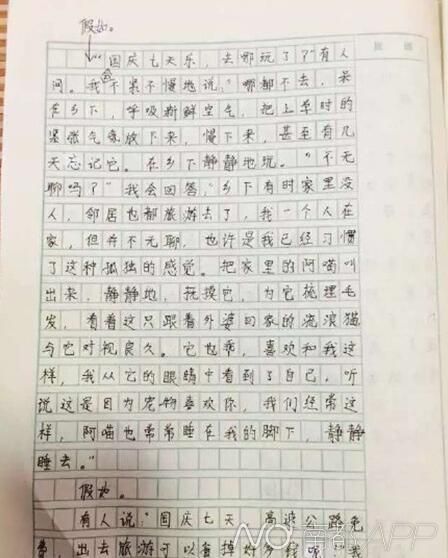 假如。
"国庆七天乐,去哪玩了?"有人
问。我会不紧不慢地说,"哪都不去,呆
在乡下,呼吸新鲜空气,把上学时的
紧张气氛放下来,慢下来,甚至有几
天忘记它。在乡下静静地玩。"不无
聊吗?"我会回答,"乡下有时家里没
人,邻居也都旅游去了,我一个人在
家,但并不无聊,也许是我已经习惯
了这种孤独的感觉。把家里的阿喵叫
出来,静静地,抚摸它,为它梳理毛
发,看着这只跟着外婆回家的流浪猫
与它对视良久。它也乖,喜欢和我这
样,我从它的眼睛中看到了自己,听
说这是因为宠物喜欢你,我们经常这
样,阿喵也常常睡在我的脚下,静静
睡去。"
假如。
有人说:"国庆七天,高速公路免
费,出去旅游可以省掉好多钱呢"我
南都APP